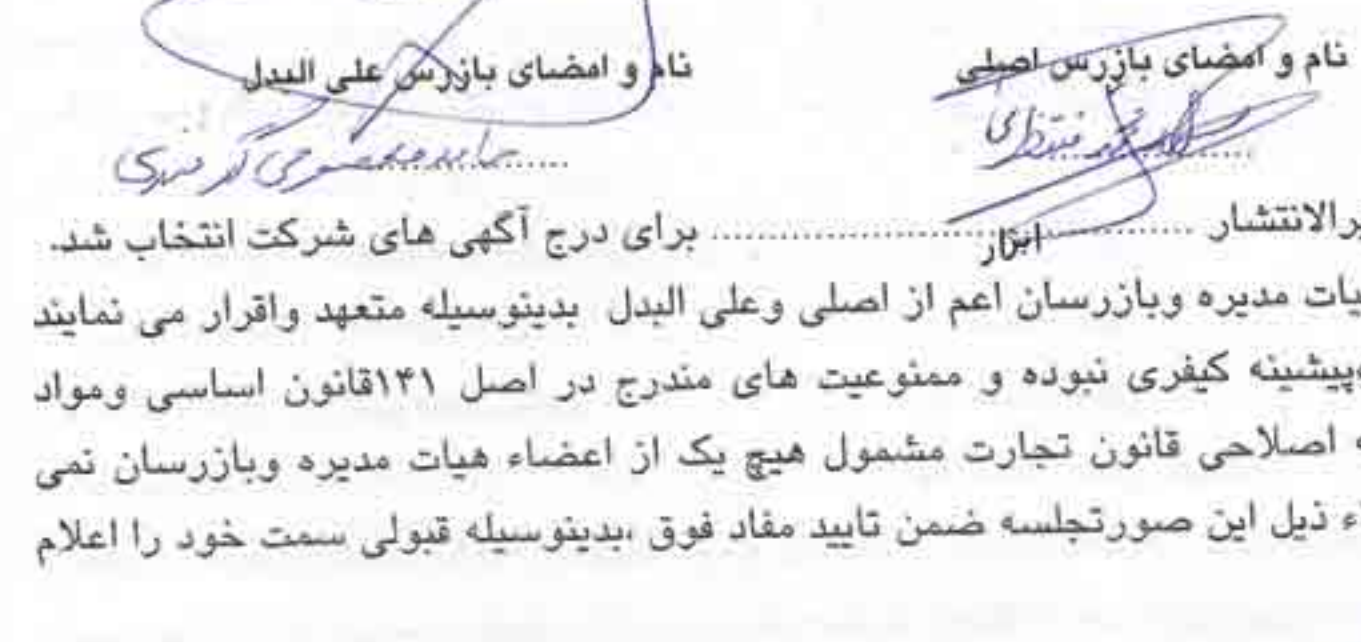 نام و امضای بازرس اصلی
نام و امضای بازرس علی البدل
رالانتشار ........ ابرار ........ برای درج آگهی های شرکت انتخاب شد.
یات مدیره وبازرسان اعم از اصلی وعلی البدل بدینوسیله متعهد واقرار می نمایند
وپیشینه کیفری نبوده و ممنوعیت های مندرج در اصل ۱۴۱قانون اساسی ومواد
اصلاحی قانون تجارت مشمول هیچ یک از اعضاء هیات مدیره وبازرسان نمی
ء ذیل این صورتجلسه ضمن تایید مفاد فوق ،بدینوسیله قبولی سمت خود را اعلام